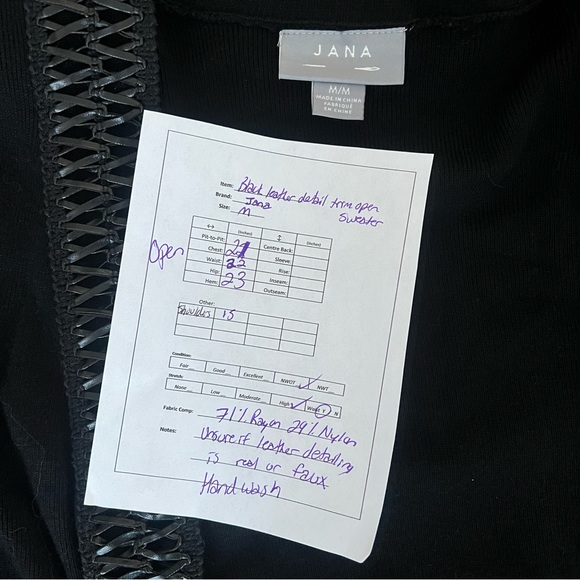 JANA
M/M
MADE IN CHINA
FABRIQUÉ
EN CHINE
Item: Black leather detail trim open
sweater
Brand: Jana
Size: M
Open
↔ (inches) ↕ (inches)
Pit-to-Pit: Centre Back:
Chest: 21 Sleeve:
Waist: 22 Rise:
Hip: 23 Inseam:
Hem: Outseam:
Other:
Shoulders 15
Condition:
Fair Good Excellent NWOT ✓ NWT
Stretch:
None Low Moderate High ✓ Waist Y N
Fabric Comp: 71% Rayon 29% Nylon
Notes: Unsure if leather detailing
is real or faux
Hand wash